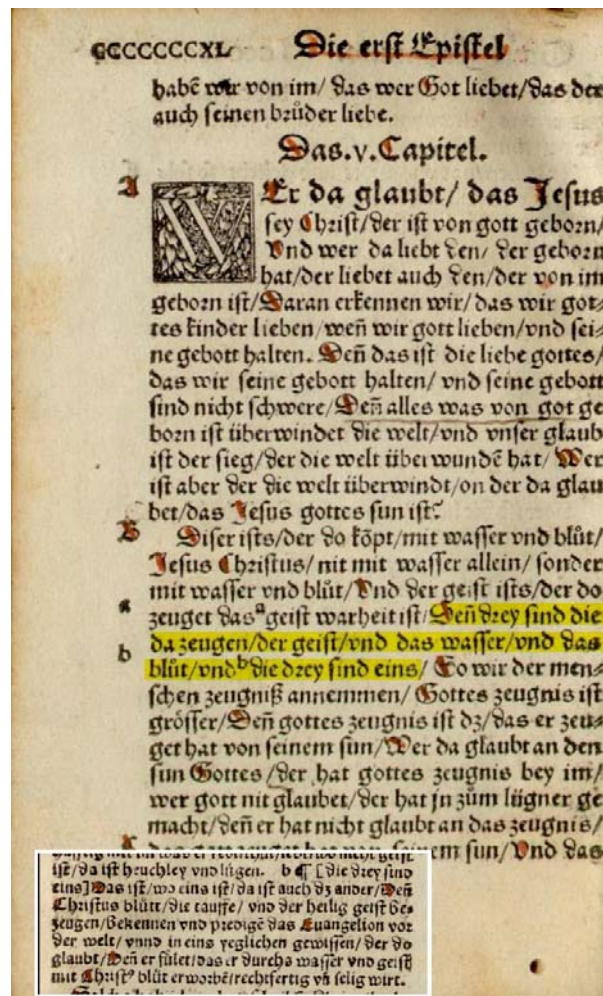 CCCCCCCXL Die erst Epistel
habē wir von im/ das wer Got liebet/das der
auch seinen brůder liebe.
Das.v.Capitel.
A
WEr da glaubt/ das Jesus
sey Christ/der ist von gott geborn/
Vnd wer da liebt den/ der geborn
hat/der liebet auch den/der von im
geborn ist/Daran erkennen wir/das wir got⸗
tes kinder lieben/wen̄ wir gott lieben/vnd sei⸗
ne gebott halten. Den̄ das ist die liebe gottes/
das wir seine gebott halten/ vnd seine gebott
sind nicht schwere/Den̄ alles was von got ge
born ist überwindet die welt/vnd vnser glaub
ist der sieg/der die welt überwundē hat/ Wer
ist aber der die welt überwindt/on der da glau
bet/das Jesus gottes sun ist?
B Diser ists/der do kōpt/mit wasser vnd blůt/
Jesus Christus/nit mit wasser allein/ sonder
mit wasser vnd blůt/Vnd der geist ists/der do
a zeuget das ᵃgeist warheit ist/Den̄ drey sind die
b da zeugen/der geist/vnd das wasser/vnd das
blůt/vnd ᵇdie drey sind eins/ So wir der men⸗
schen zeugniß annemmen/ Gottes zeugnis ist
grösser/Den̄ gottes zeugnis ist dz/das er zeu⸗
get hat von seinem sun/Wer da glaubt an den
sun Gottes/der hat gottes zeugnis bey im/
wer gott nit glaubet/der hat jn zům lügner ge
macht/den̄ er hat nicht glaubt an das zeugnis/
seinem sun/ Vnd das
ist/da ist heuchley vnd lügen. b ¶ [die drey sind
eins] Das ist/wo eins ist/da ist auch dz ander/Den̄
Christus blůtt/die tauffe/ vnd der heilig geist be⸗
zeugen/bekennen vnd predigē das Euangelion vor
der welt/ vnnd in eins yeglichen gewissen/der do
glaubt/Den̄ er fület/das er durchs wasser vnd geist
mit Christꝰ blůt erworbē/rechtfertig vn̄ selig wirt.